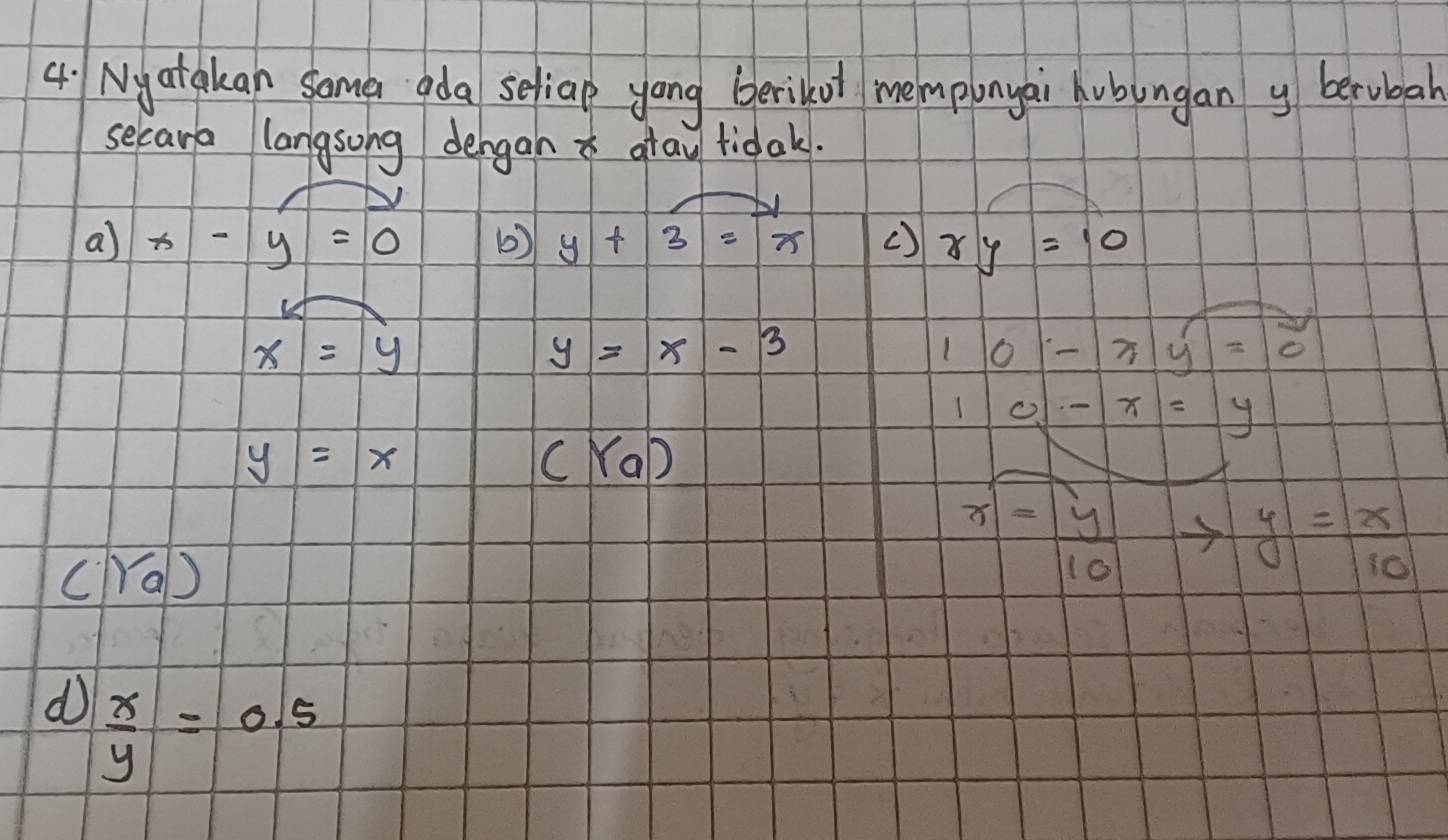 4. Nyatakan sama ada setiap yang berikut mempunyai hubungan y berubah
secara langsung dengan x atau tidak.
a) x - y = 0
x = y
y = x
(Ya)
b) y + 3 = x
y = x - 3
(Ya)
c) xy = 10
10 - xy = 0
10 - x = y
x = y/10 → y = x/10
d) x/y = 0.5